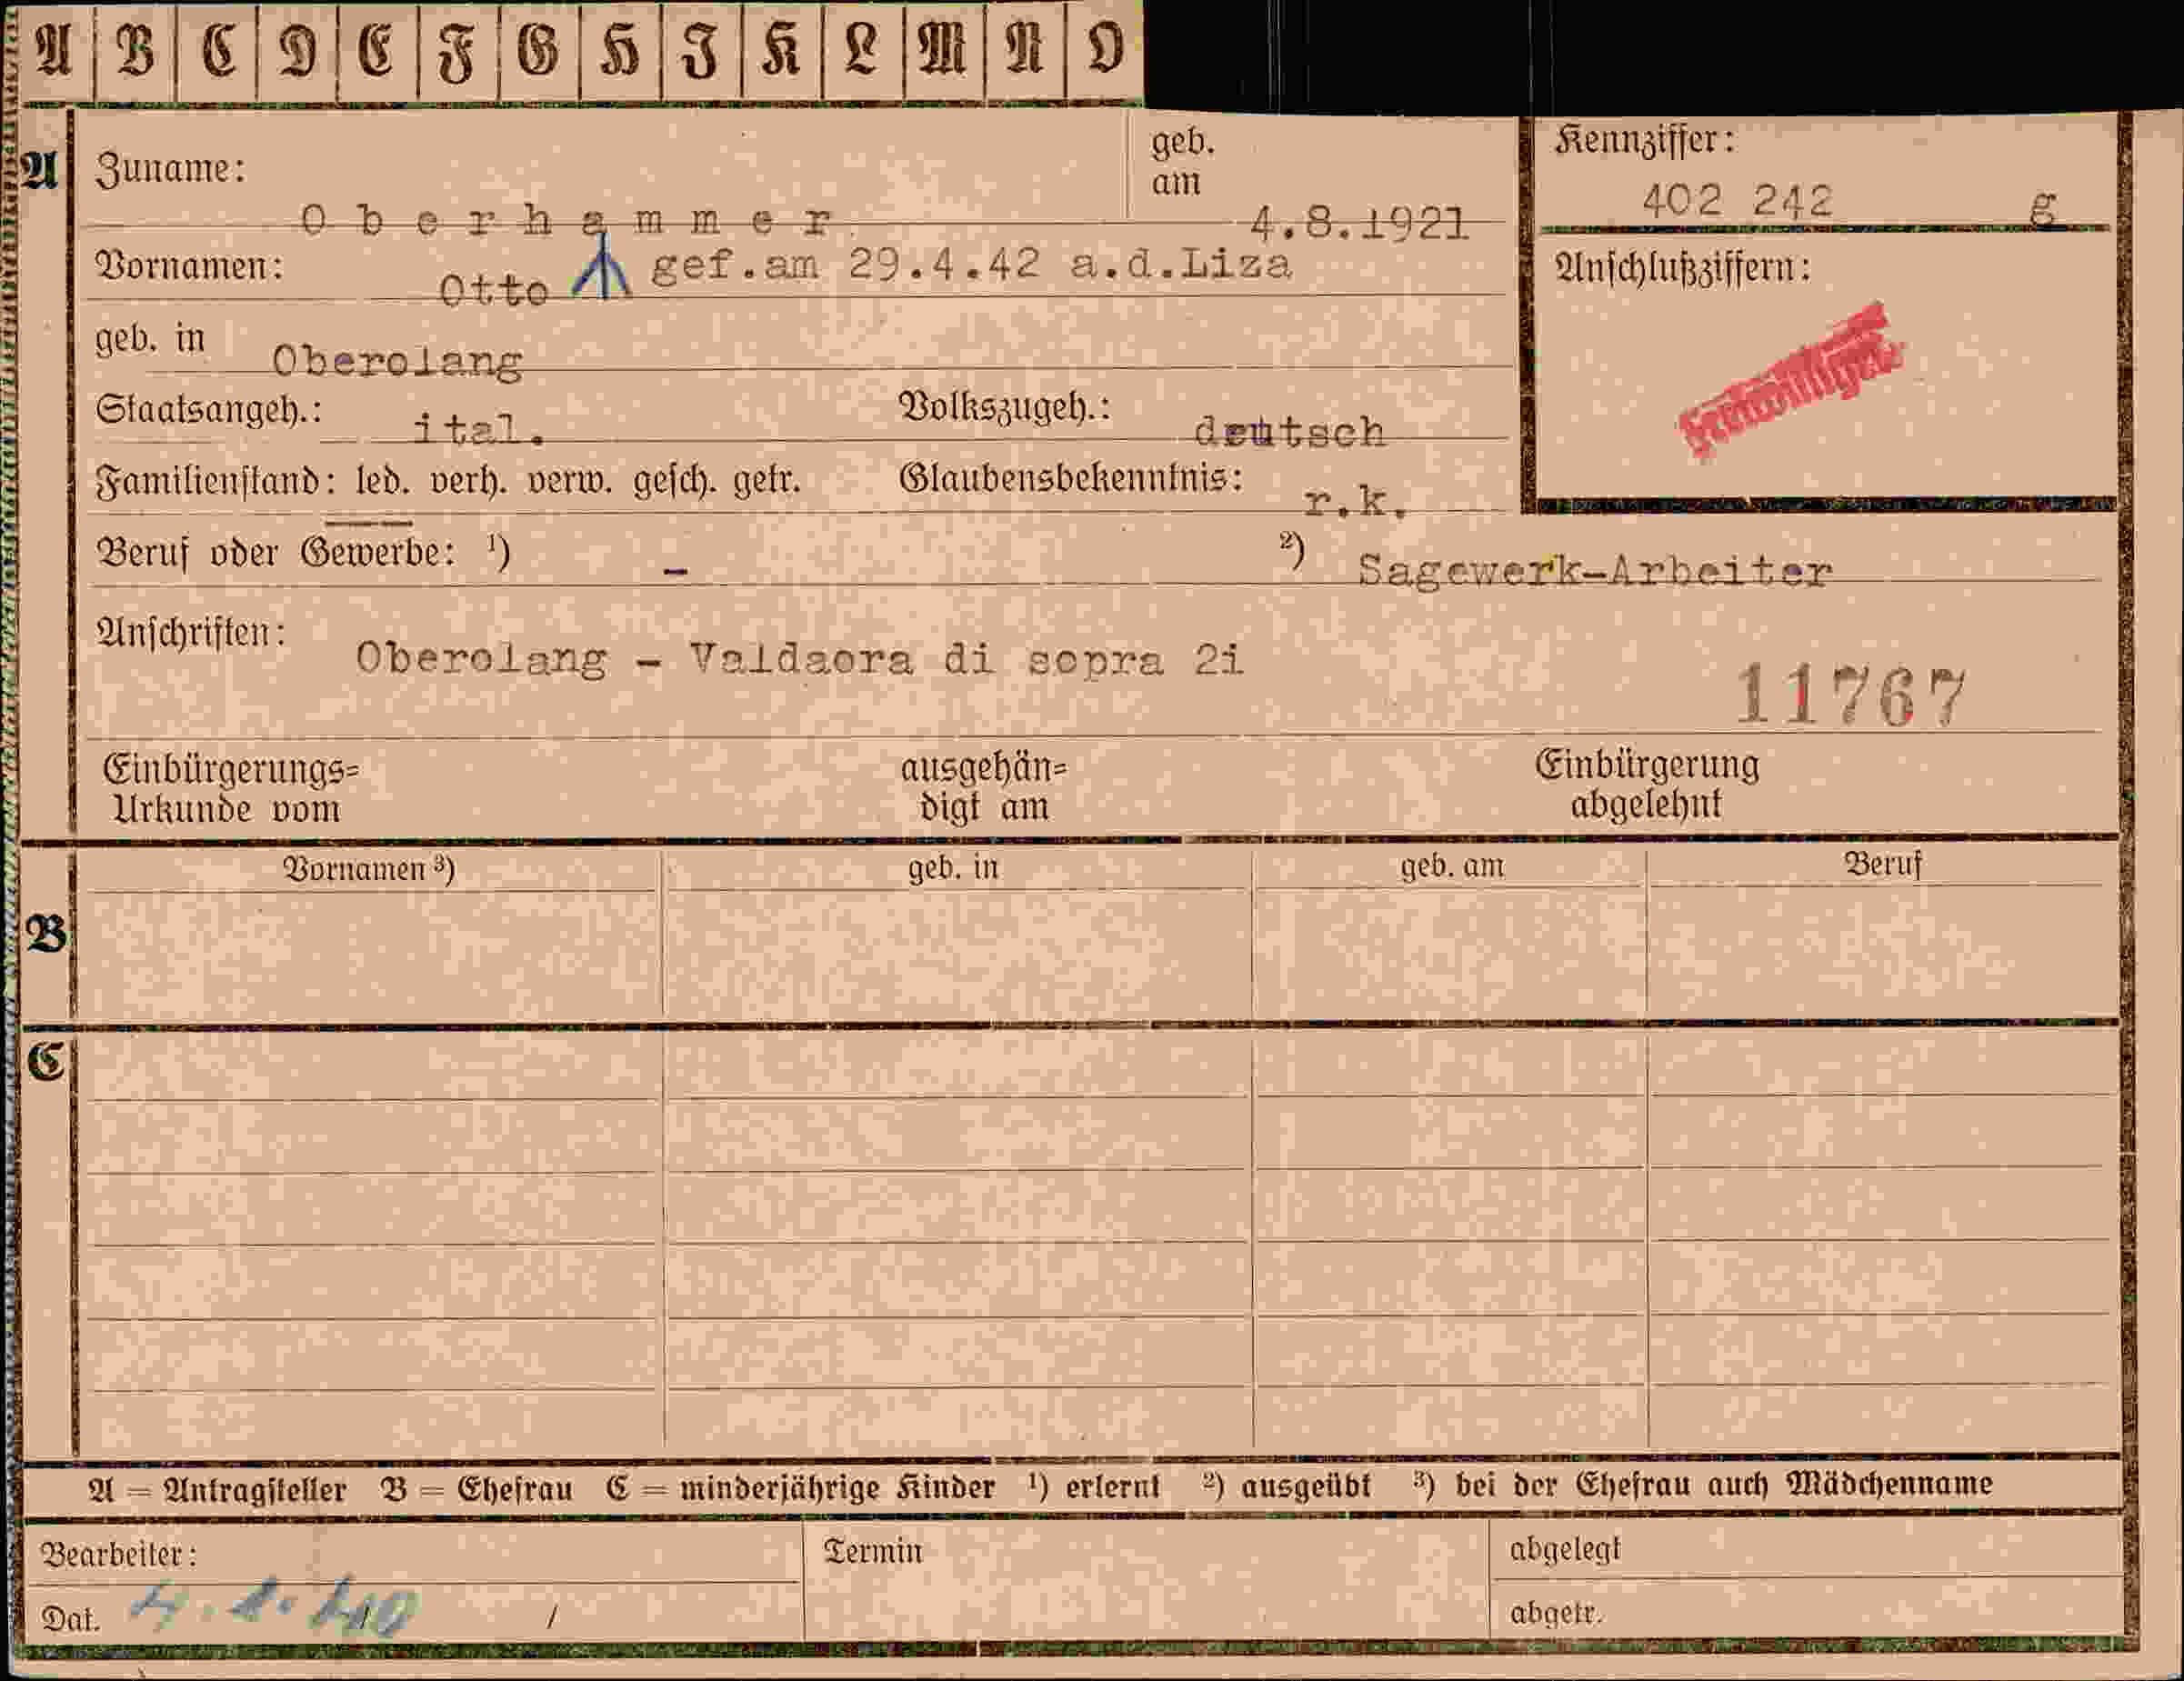 A B C D E F G H J K L M N O
A Zuname: Oberhammer geb. am 4.8.1921
Kennziffer: 402 242 g
Vornamen: Otto gef.am 29.4.42 a.d.Liza
Anschlußziffern:
Freiwilliger
geb. in Oberolang
Staatsangeh.: ital. Volkszugeh.: deutsch
Familienstand: led. verh. verw. gesch. getr. Glaubensbekenntnis: r.k.
Beruf oder Gewerbe: ¹) – ²) Sagewerk-Arbeiter
Anschriften: Oberolang - Valdaora di sopra 2i
11767
Einbürgerungs=
Urkunde vom
ausgehän=
digt am
Einbürgerung
abgelehnt
Vornamen ³) geb. in geb. am Beruf
B
C
A = Antragsteller B = Ehefrau C = minderjährige Kinder ¹) erlernt ²) ausgeübt ³) bei der Ehefrau auch Mädchenname
Bearbeiter: Termin abgelegt
Dat. / abgetr.